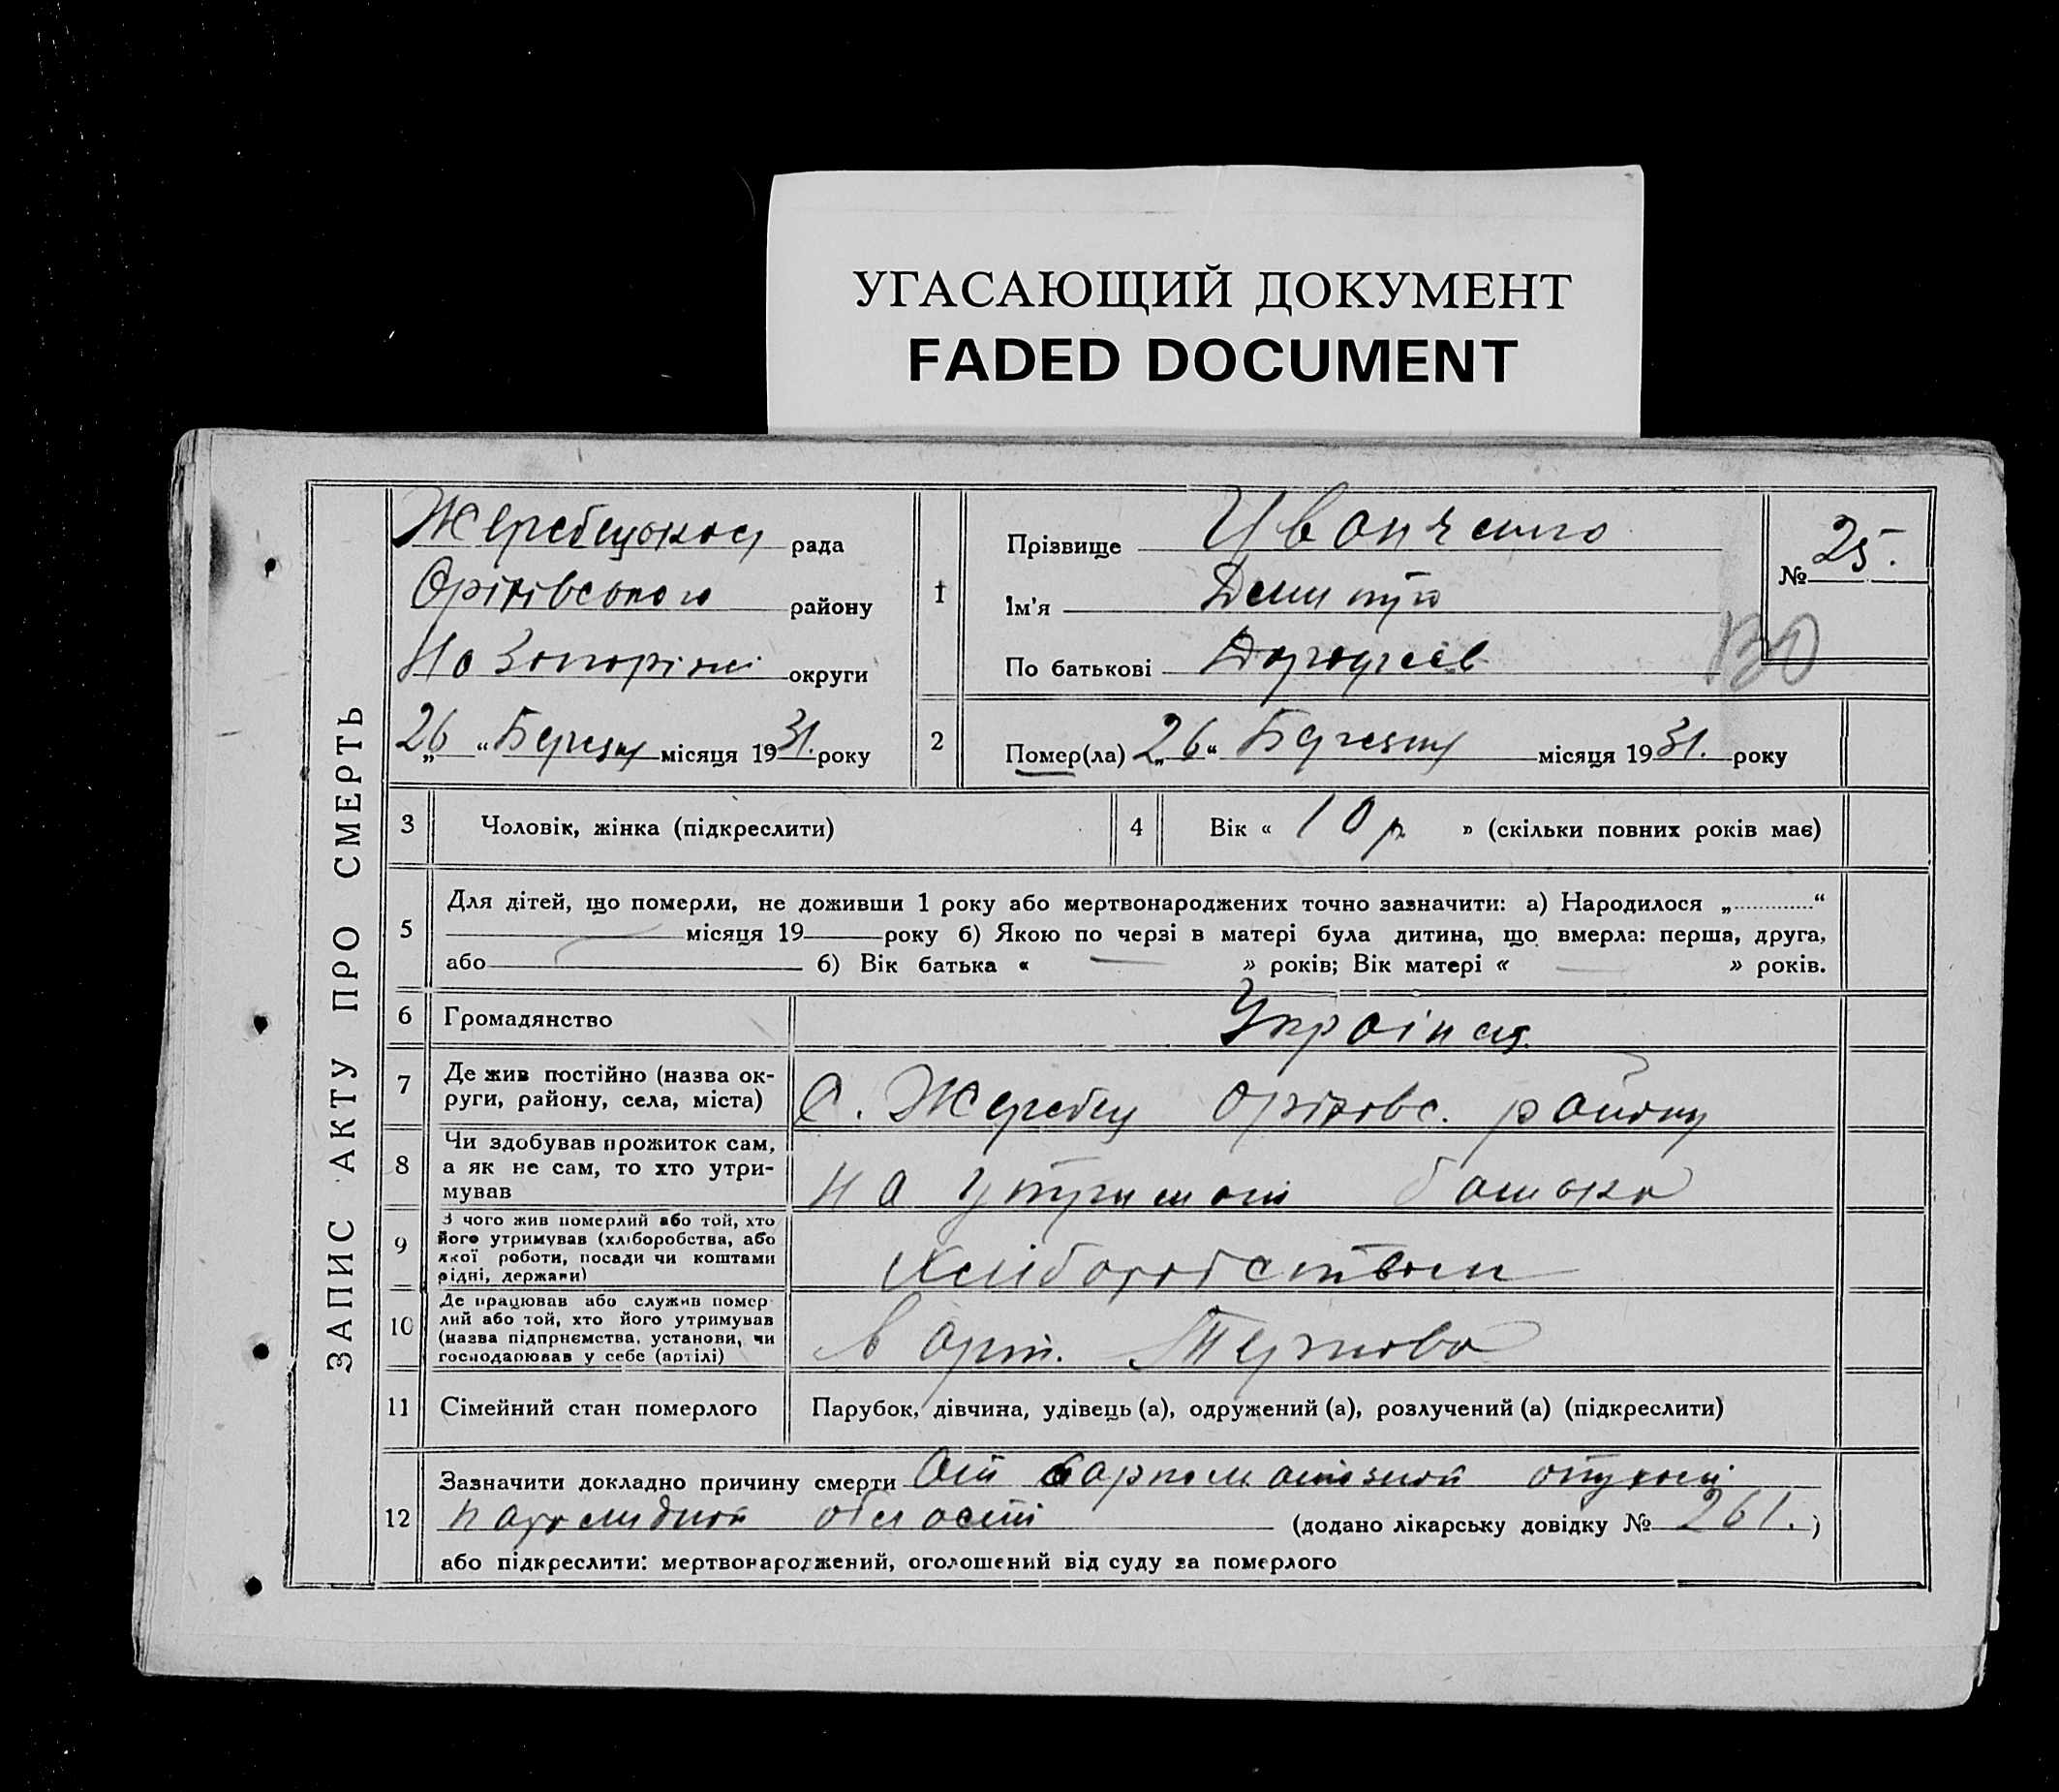 УГАСАЮЩИЙ ДОКУМЕНТ
FADED DOCUMENT
ЗАПИС АКТУ ПРО СМЕРТЬ
Жеребецької рада
Оріхівського району
На Запоріжжі округи
26 „ “ Березня місяця 1931. року
1
Прізвище Иванченко
Ім'я Дмитро
По батькові Дорофеев
№ 25.
130
2
Помер(ла) „26“ Березня місяця 1931. року
3 Чоловік, жінка (підкреслити)
4 Вік « 10 р. » (скільки повних років має)
5 Для дітей, що померли, не доживши 1 року або мертвонароджених точно зазначити: а) Народилося „ “
місяця 19 року б) Якою по черзі в матері була дитина, що вмерла: перша, друга,
або б) Вік батька « — » років; Вік матері « — » років.
6 Громадянство
Україн
7 Де жив постійно (назва ок-
руги, району, села, міста)
С. Жеребец Оріховс. району
8 Чи здобував прожиток сам,
а як не сам, то хто утри-
мував
на утриман батька
9 З чого жив померлий або той, хто
його утримував (хліборобства, або
якої роботи, посади чи коштами
рідні, держави)
хліборобством
10 Де працював або служив помер-
лий або той, хто його утримував
(назва підприємства, установи, чи
господарював у себе (артілі)
в арт.
11 Сімейний стан померлого
Парубок, дівчина, удівець (а), одружений (а), розлучений (а) (підкреслити)
12 Зазначити докладно причину смерти От саркоматозной опухоли
области (додано лікарську довідку № 261.)
або підкреслити: мертвонароджений, оголошений від суду за померлого